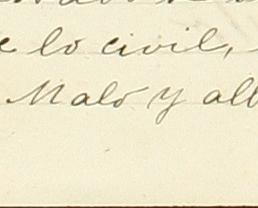 e lo civil,
Maló y all